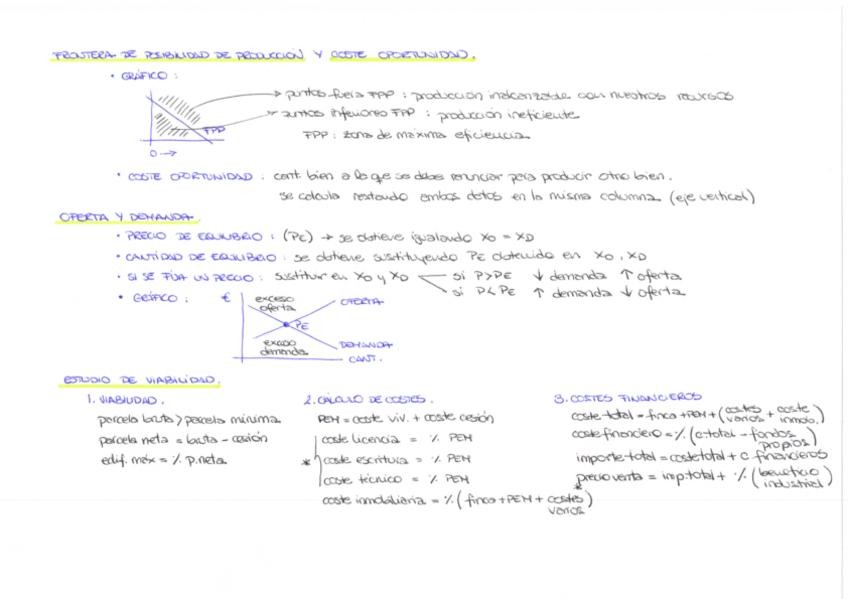 FRONTERA DE POSIBILIDAD DE PRODUCCIÓN Y COSTE OPORTUNIDAD.
· GRÁFICO :
→ puntos fuera FPP : producción inalcanzable con nuestros recursos
→ puntos inferiores FPP : producción ineficiente
FPP
FPP : zona de máxima eficiencia
0 →
· COSTE OPORTUNIDAD : cant. bien a lo que se debe renunciar para producir otro bien.
se calcula restando ambos datos en la misma columna (eje vertical)
OFERTA Y DEMANDA.
· PRECIO DE EQUILIBRIO : (PE) → se obtiene igualando XO = XD
· CANTIDAD DE EQUILIBRIO : se obtiene sustituyendo PE obtenido en XO, XD
· SI SE FIJA UN PRECIO : sustituir en XO y XD
si P>PE ↓ demanda ↑ oferta
si P<PE ↑ demanda ↓ oferta
· GRÁFICO :
€
exceso oferta
OFERTA
PE
exceso demanda
DEMANDA
CANT.
ESTUDIO DE VIABILIDAD.
1. VIABILIDAD.
parcela bruta > parcela mínima
parcela neta = bruta - cesión
edif. máx = % p.neta
2. CALCULO DE COSTES.
PEM = coste viv. + coste cesión
coste licencia = % PEM
* coste escritura = % PEM
coste técnico = % PEM
coste inmobiliaria = % (finca + PEM + costes varios)
3. COSTES FINANCIEROS
coste total = finca + PEM + (costes varios + coste inmob.)
*
coste financiero = % (c.total - fondos propios)
importe total = coste total + c. financieros
precio venta = imp.total + % (beneficio industrial)